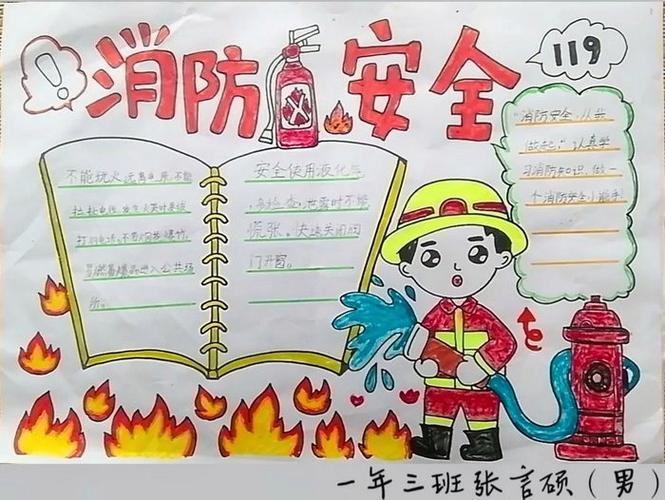 消防安全
119
不能玩火,远离电源,不能
乱拉电线,发生火灾时要拨
打119电话,不要
易燃易爆品进入公共场
所。
安全使用液化气
多检查,泄露时不能
慌张,快速关闭阀
门开窗。
"消防安全,从我
做起",认真学
习消防知识,做一
个消防安全小能手
一年三班张言硕(男)